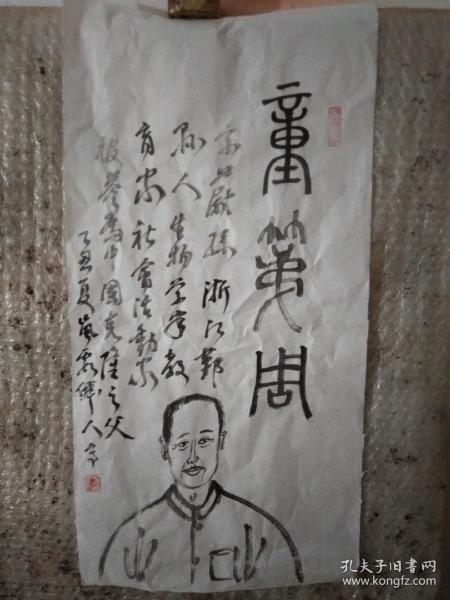 童第周
浙江鄞
县人生物学家教
育家社會活動家
被誉为中國克隆之父
丑夏
孔夫子旧书网
www.kongfz.com